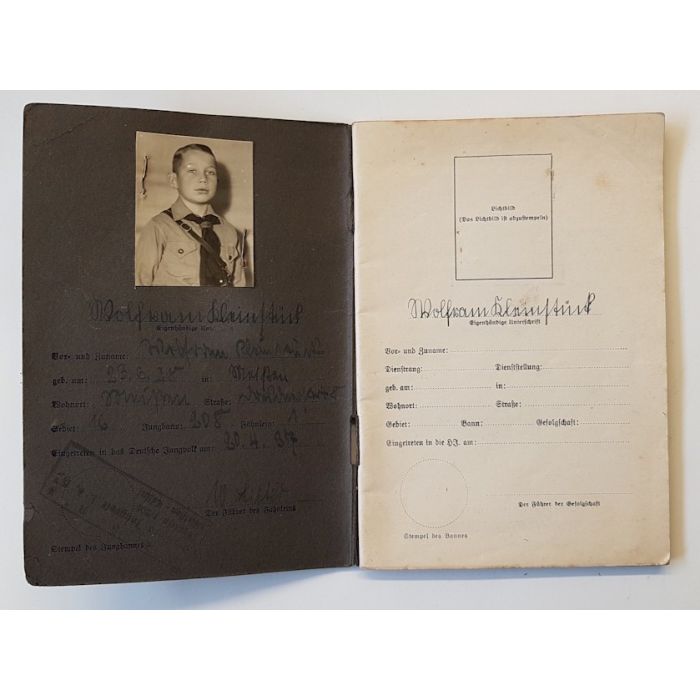 Wolfram Kleinstück
Eigenhändige Unt
Vor- und Zuname: Wolfram Kleinstück
geb. am: in: Meißen
Wohnort: Meißen Straße:
Gebiet: 16 Jungbann: 208 Fähnlein: 1
Eingetreten in das Deutsche Jungvolk am: 20.4.37
Der Führer des Fähnleins
Stempel des Jungbannes
Lichtbild
(Das Lichtbild ist abzustempeln)
Wolfram Kleinstück
Eigenhändige Unterschrift
Vor- und Zuname:
Dienstrang: Dienststellung:
geb. am: in:
Wohnort: Straße:
Gebiet: Bann: Gefolgschaft:
Eingetreten in die HJ. am:
Der Führer der Gefolgschaft
Stempel des Bannes